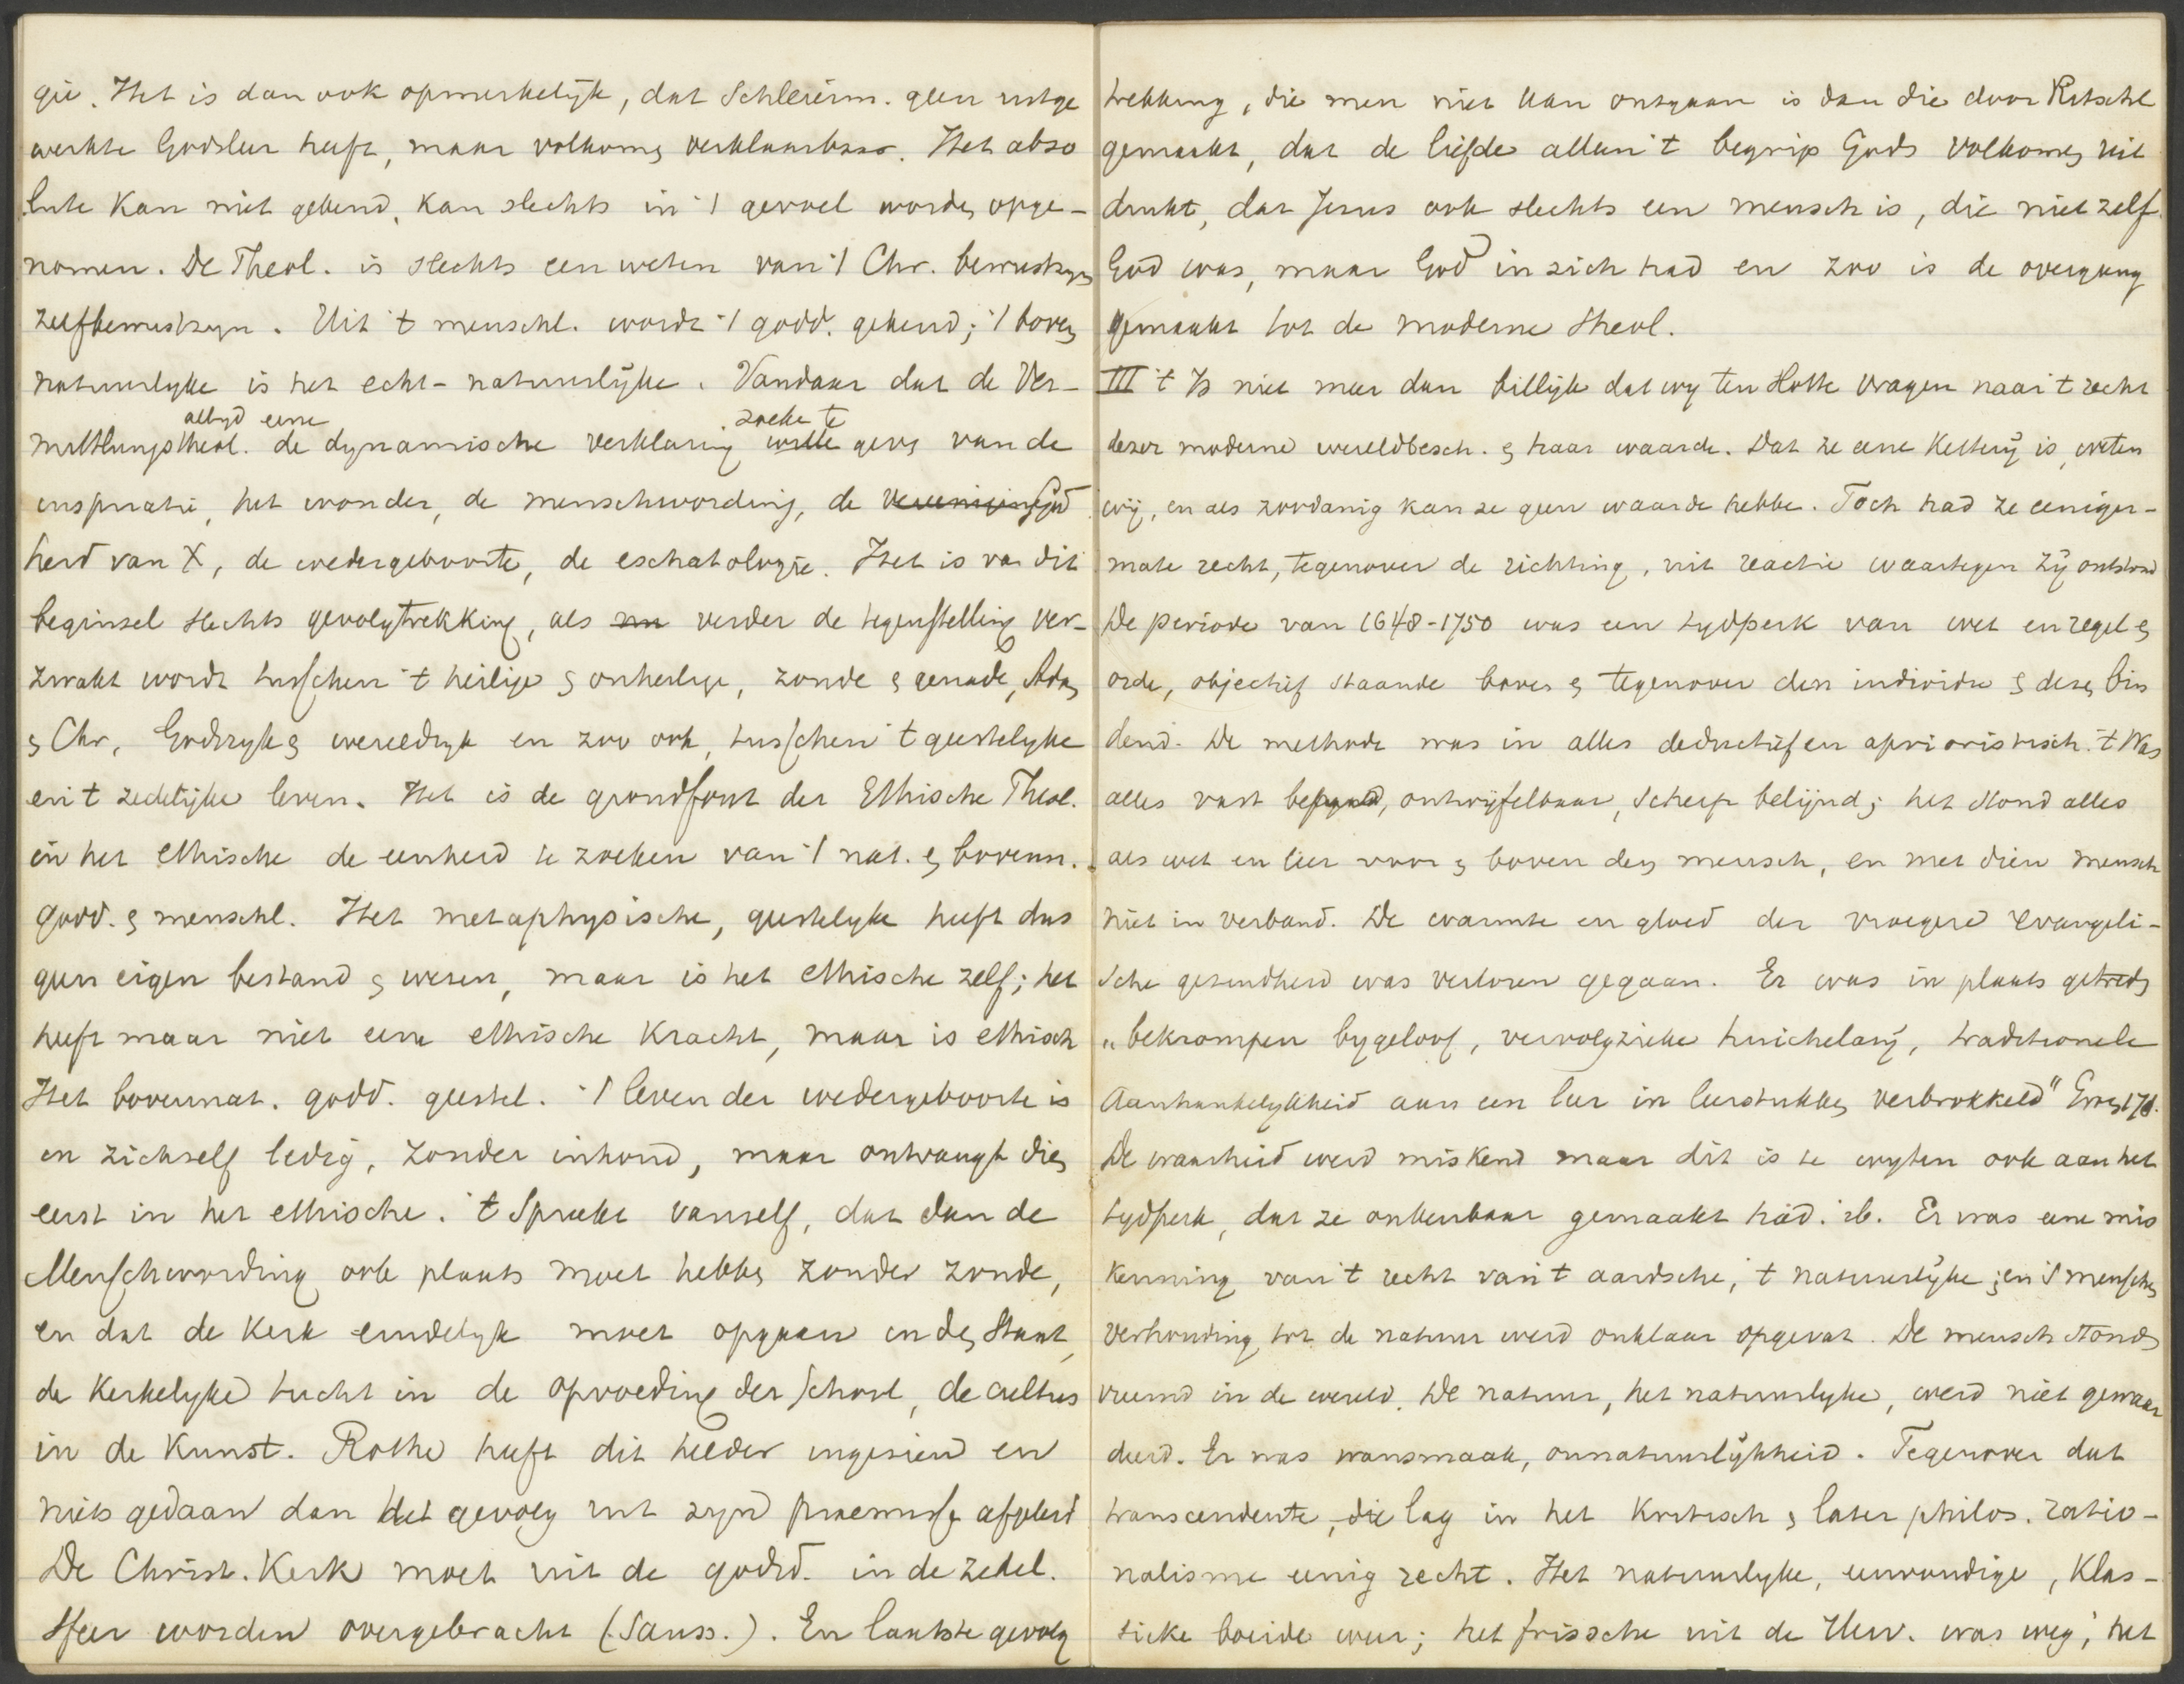 gie. Het is dan ook opmerkelijk, dat Schleierm. geen uitge
werkte Godsleer heeft, maar volkomen verklaarbaar. Het abso
lute kan niet gekend, kan slechts in 't gevoel worden opge-
nomen. De Theol. is slechts een weten van 't Chr. bewustzyn
zelfbewustzyn. Uit 't menschl. wordt 't godd. gekend; 't boven
natuurlyke is het echt-natuurlijke. Vandaar dat de Ver-
altyd eene zoekt te
mittlungstheol. de dynamische verklaring wilde geven van de
inspiratie, het wonder, de menschwording, de vereeniging God
heid van X, de wedergeboorte, de eschatologie. Het is van dit
beginsel slechts gevolgtrekking, als nu verder de tegenstelling ver-
zwakt wordt tusschen 't heilige & onheilige, zonde & genade, Adam
& Chr, Godsryk & wereldryk en zoo ook, tusschen 't geestelyke
en 't zedelijke leven. Het is de grondfout der Ethische Theol.
in het ethische de eenheid te zoeken van 't nat. & bovenn.
godd. & menschl. Het metaphysische, geestelyke heeft dus
geen eigen bestand & wezen, maar is het ethische zelf; het
heeft maar niet eene ethische kracht, maar is ethisch
Het bovennat. godd. geestel. 't leven der wedergeboorte is
in zichzelf ledig, zonder inhoud, maar ontvangt dien
eerst in het ethische. 't Spreekt vanzelf, dat dan de
Menschwording ook plaats moet hebben zonder zonde,
en dat de Kerk eindelyk moet opgaan in den Staat,
de Kerkelyke tucht in de opvoeding der School, de cultus
in de Kunst. Rothe heeft dit helder ingezien en
niets gedaan dan het gevolg uit zyn praemisse afgeleid
De Christ. Kerk moet uit de godsd. in de zedel.
sfeer worden overgebracht (Sauss.). En laatste gevolg
trekking, die men niet kan ontgaan is dan die door Ritschl
gemaakt, dat de liefde alleen 't begrip Gods volkomen uit
drukt, dat Jezus ook slechts een mensch is, die niet zelf
God was, maar God in zich had en zoo is de overgang
gemaakt tot de moderne theol.
III 't Is niet meer dan billijk dat wy ten Slotte vragen naar 't recht
dezer moderne wereldbesch. & haar waarde. Dat ze eene Ketterij is, weten
wij, en als zoodanig kan ze geen waarde hebbe. Toch had ze eeniger-
mate recht, tegenover de richting, uit reactie waartegen zij ontstond
De periode van 1648-1750 was een tydperk van wet en regel &
orde, objectief staande boven & tegenover den individu & dezen bin
dend. De methode was in alles deductief en aprioristisch. 't Was
alles vast bepaald, ontwijfelbaar, scherp belijnd; het stond alles
als wet en leer voor & boven den mensch, en met dien mensch
niet in verband. De warmte en gloed der vroegere evangeli-
sche gezindheid was verloren gegaan. Er was in plaats getreden
„bekrompen bygeloof, vervolgzieke huichelarij, traditioneele
Aanhankelykheid aan een leer in leerstukken verbrokkeld"
De waarheid werd miskend maar dit is te wyten ook aan het
tydperk, dat ze onkenbaar gemaakt had. ib. Er was eene mis
kenning van 't recht van 't aardsche, 't natuurlijke; en 's menschen
verhouding tot de natuur werd onklaar opgevat. De mensch stond
vreemd in de wereld. De natuur, het natuurlyke, werd niet gewaar
deerd. Er was wansmaak, onnatuurlijkheid. Tegenover dat
transcendente, die lag in het Kritisch & later philos. ratio-
nalisme eenig recht. Het natuurlyke, eenvoudige, Klas-
sieke boeide weer; het frissche uit de Herv. was weg; het